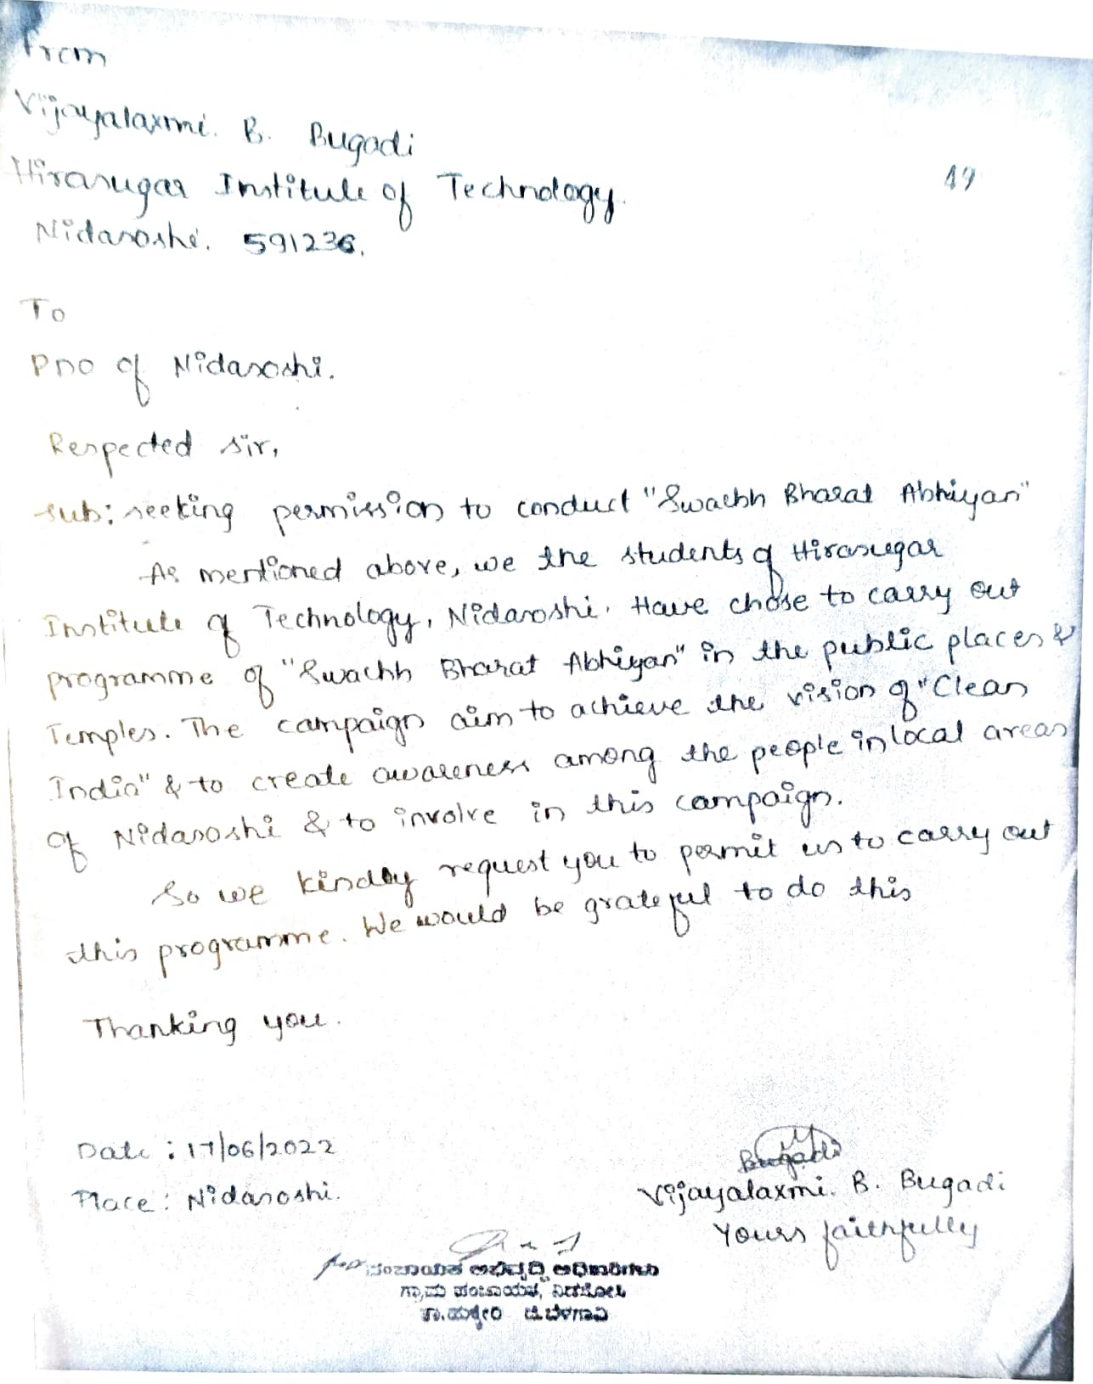 From
Vijayalaxmi. B. Bugadi
Hirasugar Institute of Technology.
49
Nidasoshi. 591236.
To
PDO of Nidasoshi.
Respected sir,
sub: seeking permission to conduct "Swachh Bharat Abhiyan"
As mentioned above, we the students of Hirasugar
Institute of Technology, Nidasoshi. Have chose to carry out
programme of "Swachh Bharat Abhiyan" in the public places &
Temples. The campaign aim to achieve the vision of "Clean
India" & to create awareness among the people in local areas
of Nidasoshi & to involve in this campaign.
So we kindly request you to permit us to carry out
this programme. We would be grateful to do this
Thanking you.
Date : 17/06/2022
Place : Nidasoshi.
Bugadi
Vijayalaxmi. B. Bugadi
Yours faithfully
ಪಂಚಾಯತ ಅಭಿವೃದ್ಧಿ ಅಧಿಕಾರಿಗಳು
ಗ್ರಾಮ ಪಂಚಾಯತ, ನಿಡಸೋಸಿ
ತಾ.ಹುಕ್ಕೇರಿ ಜಿ.ಬೆಳಗಾವಿ